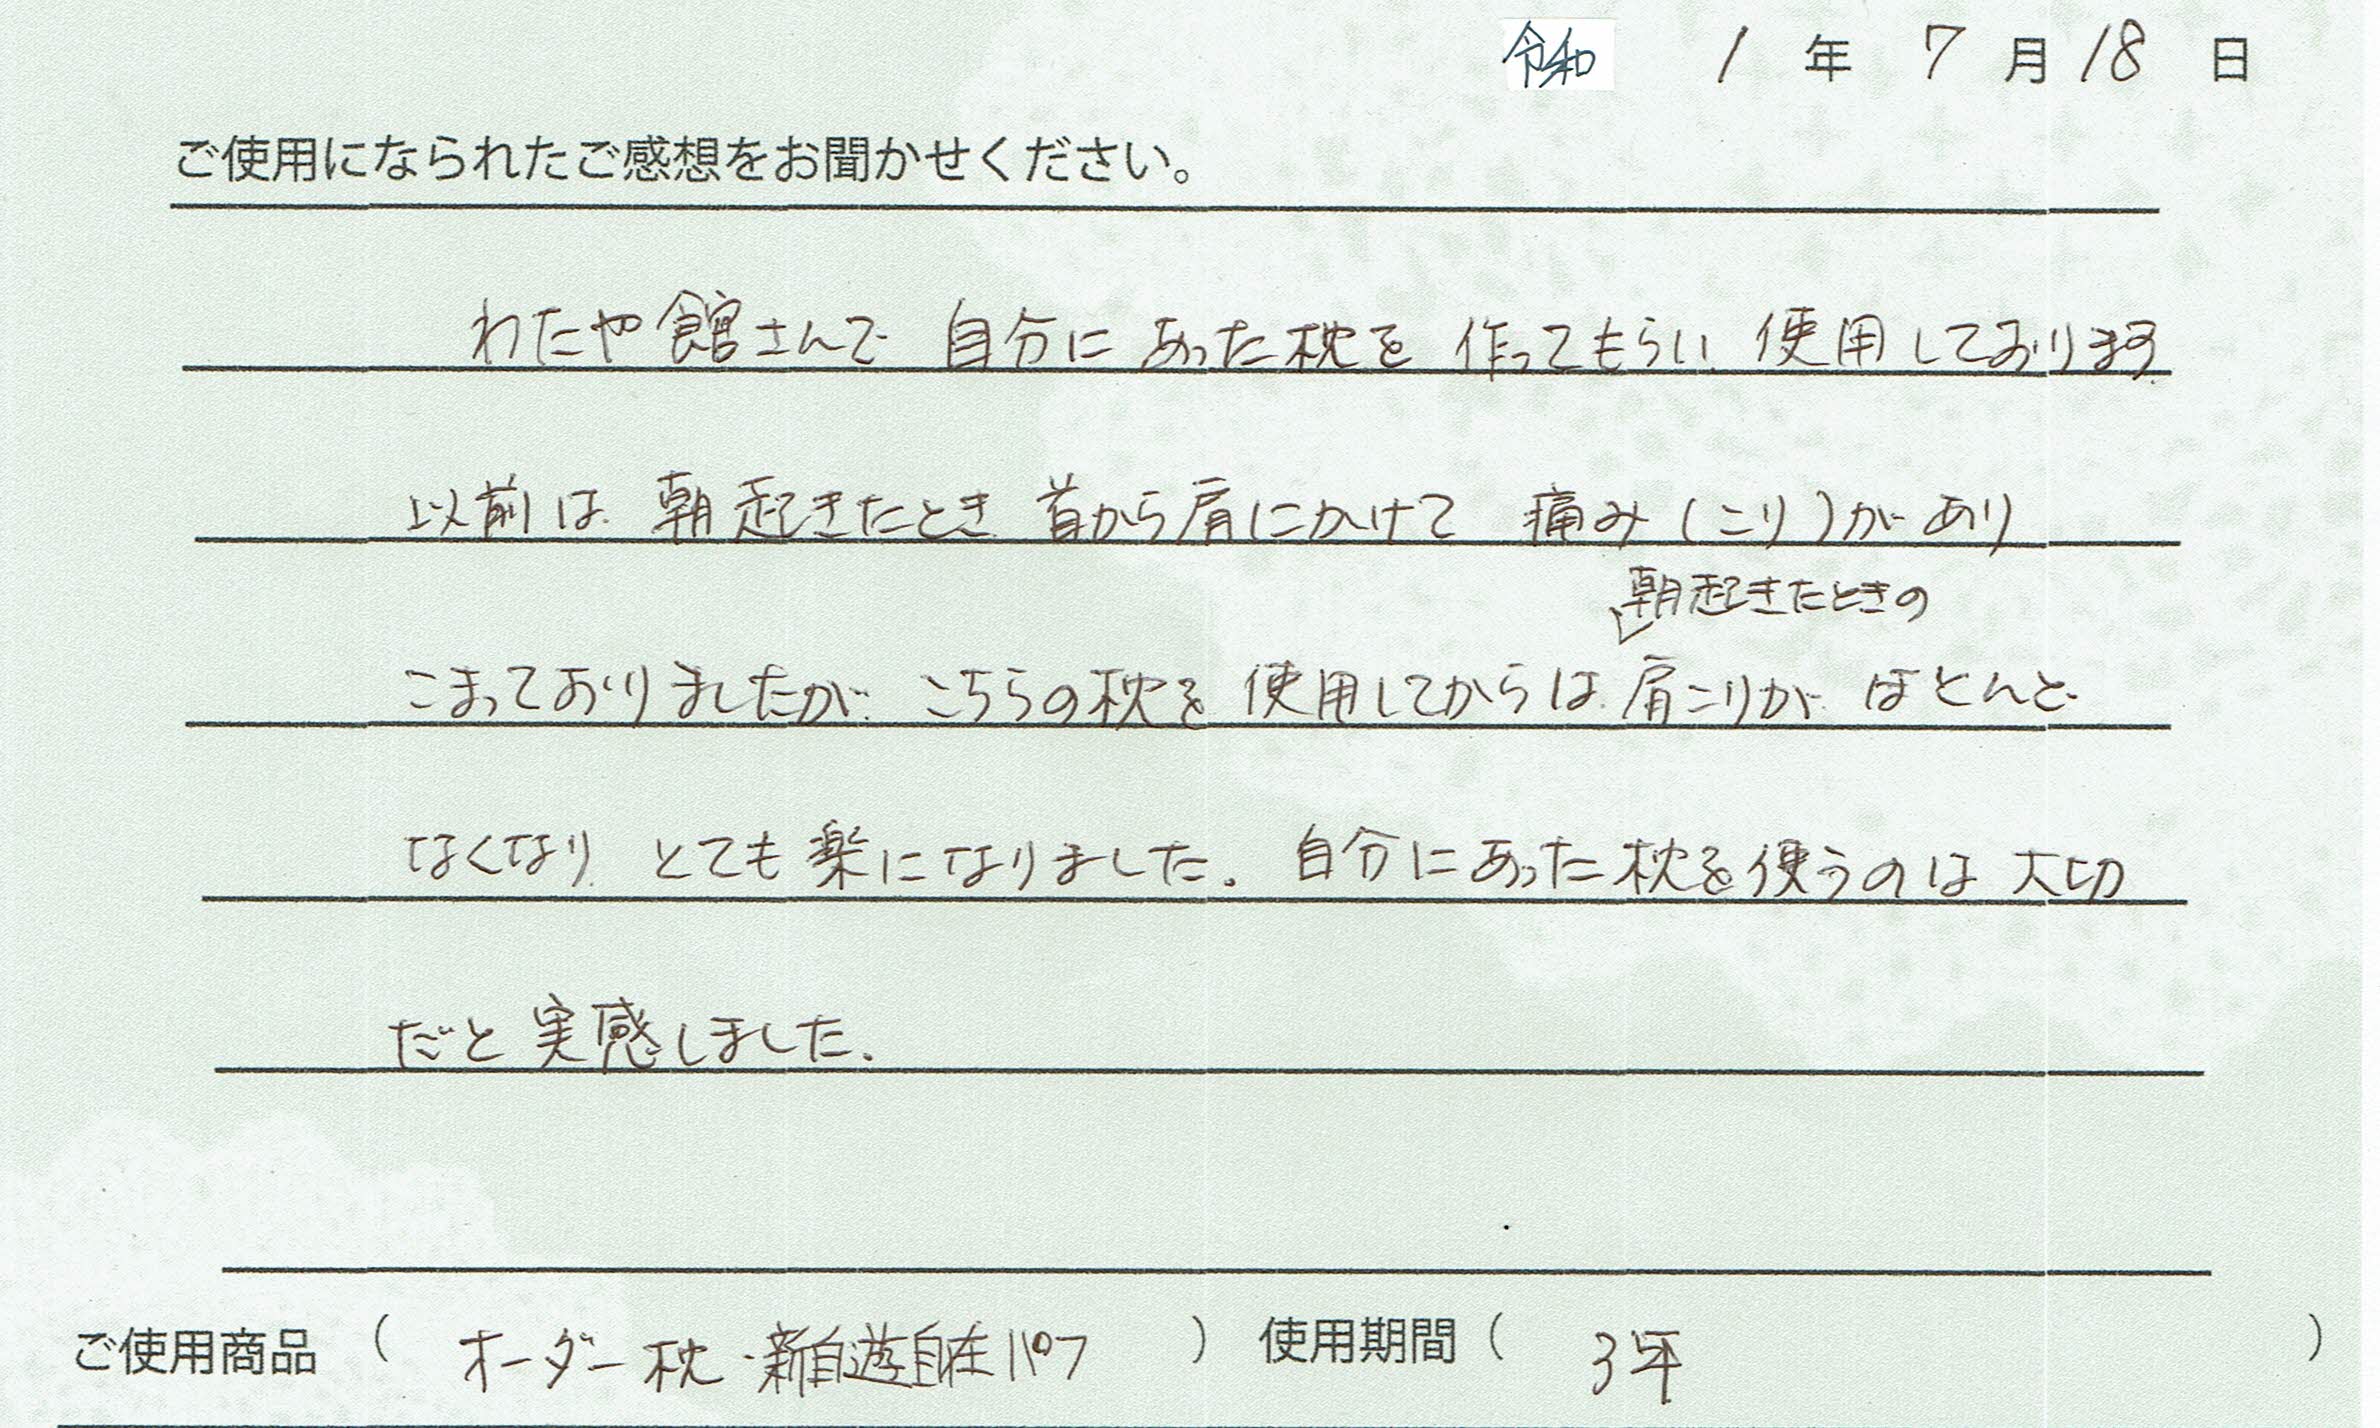 令和 1 年 7 月 18 日
ご使用になられたご感想をお聞かせください。
わたや館さんで 自分に あった枕を 作ってもらい 使用しております。
以前は、朝起きたとき 首から肩にかけて 痛み(こり)が あり
朝起きたときの
こまっておりましたが、こちらの枕を 使用してからは、肩こりが ほとんど
なくなり、とても楽になりました。自分にあった枕を使うのは 大切
だと 実感しました。
ご使用商品 ( オーダー枕・新自遊自在パフ ) 使用期間 ( 3年 )